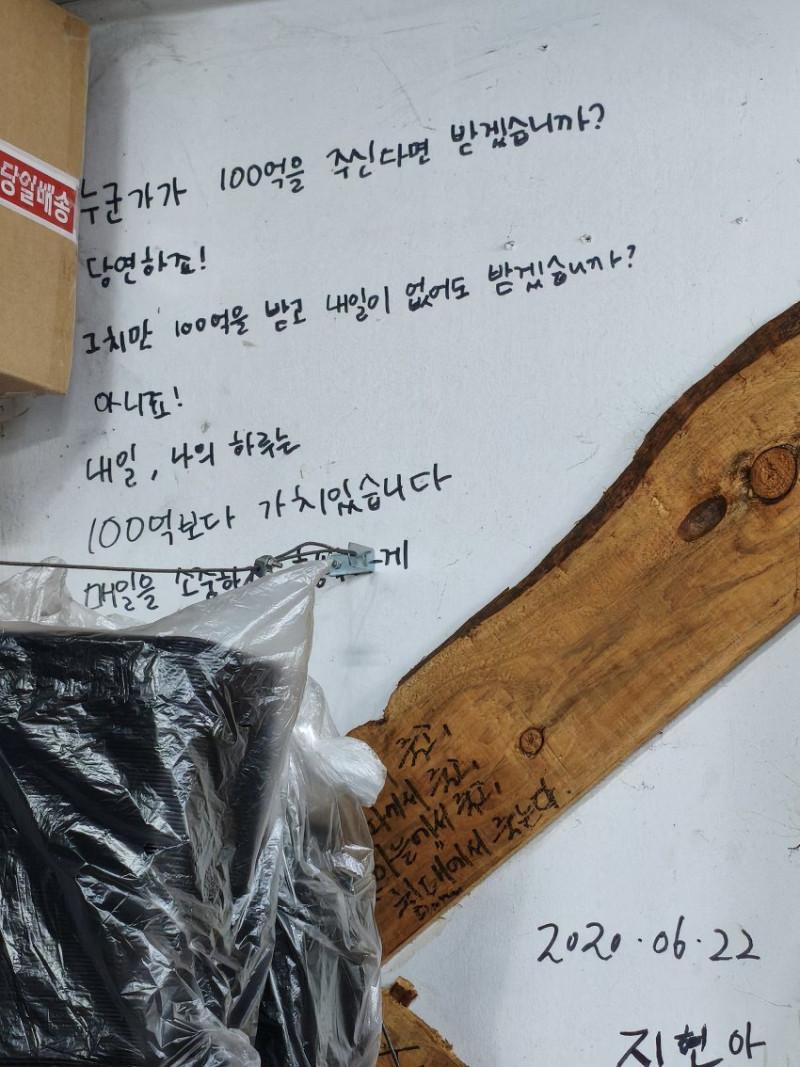 당일배송
누군가가 100억을 주신다면 받겠습니까?
당연하죠!
그치만 100억을 받고 내일이 없어도 받겠습니까?
아니죠!
내일, 나의 하루는
100억보다 가치있습니다
매일을 게
에서
에서
침대에서 죽는다.
2020.06.22
지현아